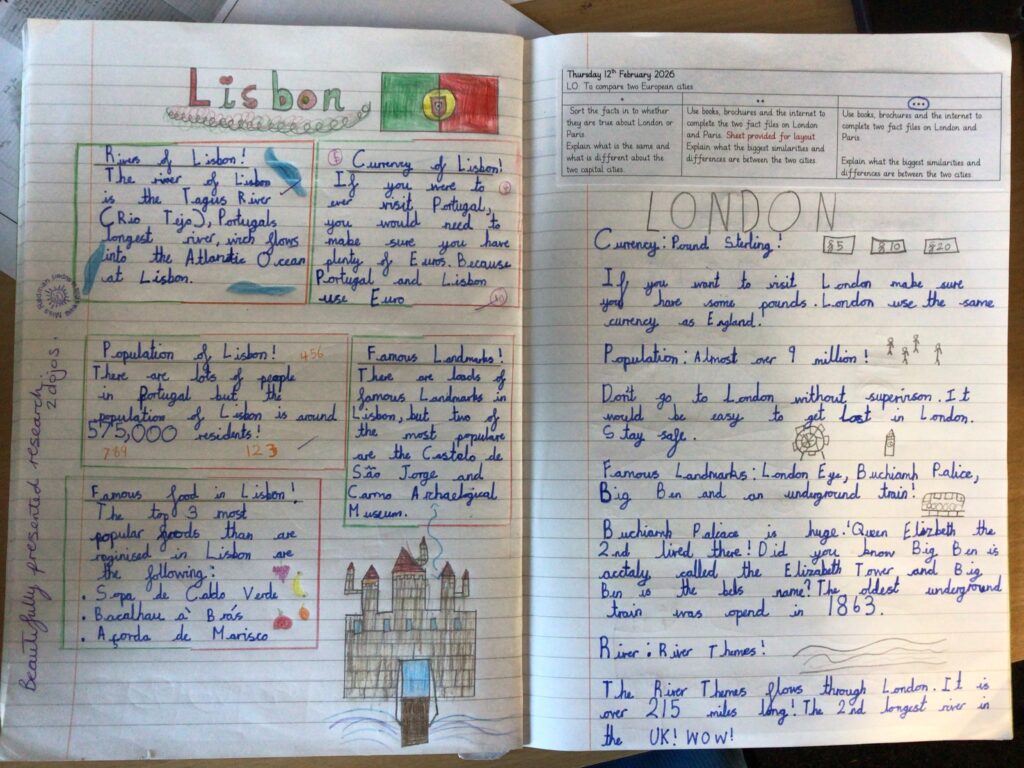 Lisbon
Rivers of Lisbon!
The river of Lisbon
is the Tagus River
(Rio Tejo), Portugals
longest river, wich flows
into the Atlantic Ocean
at Lisbon.
Currency of Lisbon!
If you were to
ever visit Portugal,
you would need to
make sure you have
plenty of Euros. Because
Portugal and Lisbon
use Euro
Population of Lisbon!
456
There are lots of people
in Portugal but the
population of Lisbon is around
575,000 residents!
789
123
Famous Landmarks!
There are loads of
famous Landmarks in
Lisbon, but two of
the most populare
are the Castelo de
São Jorge and
Carmo Archaelogical
Museum.
Famous food in Lisbon!
The top 3 most
popular foods than are
reginised in Lisbon are
the following:
• Sopa de Caldo Verde
• Bacalhau à Brás
• Açorda de Marisco
Beautifully presented research.
2 dojos.
Thursday 12th February 2026
LO: To compare two European cities
Sort the facts in to whether
they are true about London or
Paris.
Explain what is the same and
what is different about the
two capital cities.
Use books, brochures and the internet to
complete the two fact files on London
and Paris. Sheet provided for layout.
Explain what the biggest similarities and
differences are between the two cities.
Use books, brochures and the internet to
complete two fact files on London and
Paris.
Explain what the biggest similarities and
differences are between the two cities.
LONDON
Currency: Pound Sterling!
§5 §10 §20
If you want to visit London make sure
you have some pounds. London use the same
currency as England.
Population: Almost over 9 million!
Don't go to London without supervirson. It
would be easy to get Lost in London.
Stay safe.
Famous Landmarks: London Eye, Buchiamh Palice,
Big Ben and an underground train!
Buchiamh Paleace is huge! Queen Elizbeth the
2nd lived there! Did you know Big Ben is
acctaly called the Elizabeth Tower and Big
Ben is the bels name? The oldest underground
train was opend in 1863.
River: River Themes!
The River Themes flows through London. It is
over 215 miles long! The 2nd longest river in
the UK! WOW!